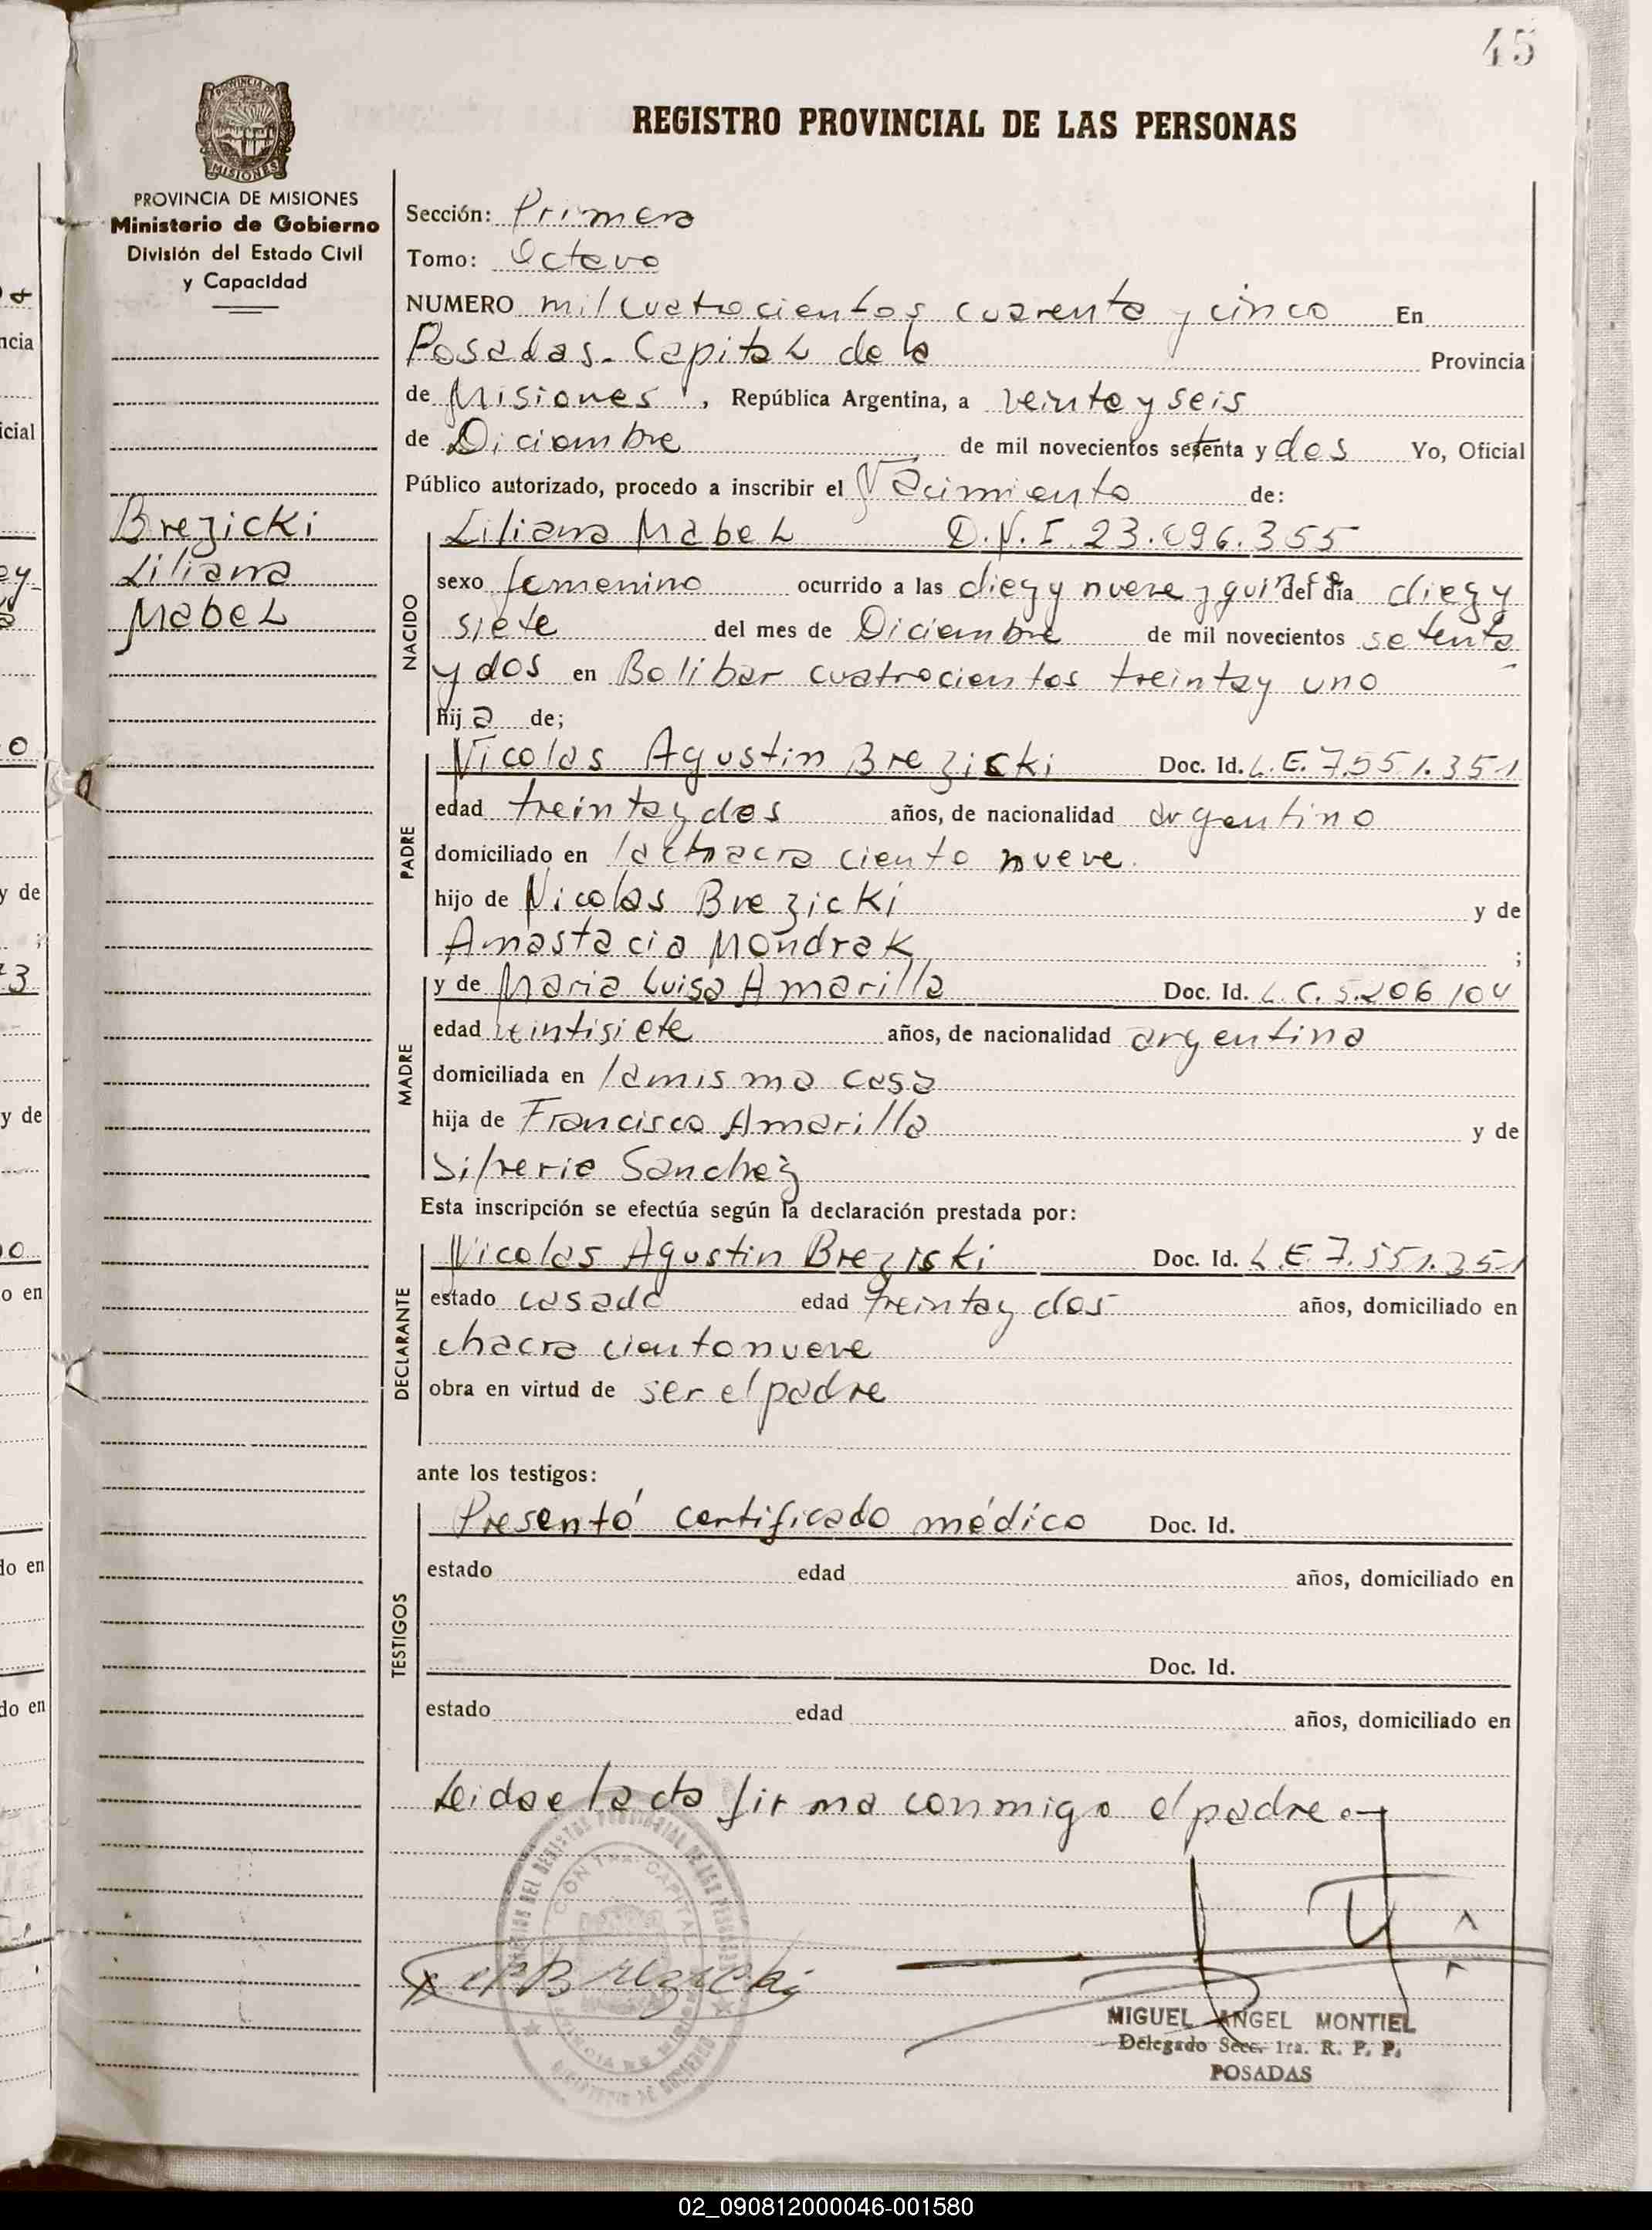 45
PROVINCIA DE
MISIONES
REGISTRO PROVINCIAL DE LAS PERSONAS
PROVINCIA DE MISIONES
Ministerio de Gobierno
División del Estado Civil
y Capacidad
Brezicki
Liliana
Mabel
Sección: Primera
Tomo: Octavo
NUMERO mil cuatrocientos cuarenta y cinco En
Posadas- Capital de la Provincia
de Misiones, República Argentina, a veinte y seis
de Diciembre de mil novecientos setenta y dos Yo, Oficial
Público autorizado, procedo a inscribir el Nacimiento de:
NACIDO
Liliana Mabel D.N.I. 23.096.355
sexo femenino ocurrido a las diez y nueve y quince del día diez y
siete del mes de Diciembre de mil novecientos setenta
y dos en Bolibar cuatrocientos treinta y uno
hija de;
PADRE
Nicolas Agustin Breziski Doc. Id. L.E. 7.551.351
edad treinta y dos años, de nacionalidad argentino
domiciliado en la chacra ciento nueve.
hijo de Nicolas Brezicki y de
Anastacia Mondrak ;
MADRE
y de Maria Luisa Amarilla Doc. Id. L.C. 5.206.104
edad veintisiete años, de nacionalidad argentina
domiciliada en la misma casa
hija de Francisco Amarilla y de
Silveria Sanchez
Esta inscripción se efectúa según la declaración prestada por:
DECLARANTE
Nicolas Agustin Breziski Doc. Id. L.E. 7.551.351
estado casado edad treinta y dos años, domiciliado en
chacra ciento nueve
obra en virtud de ser el padre
ante los testigos:
TESTIGOS
Presentó certificado médico Doc. Id.
estado edad años, domiciliado en
Doc. Id.
estado edad años, domiciliado en
Leida el acta firma conmigo el padre
Brezicki
MIGUEL ANGEL MONTIEL
Delegado Secc. 1ra. R. P. P.
POSADAS
02_090812000046-001580